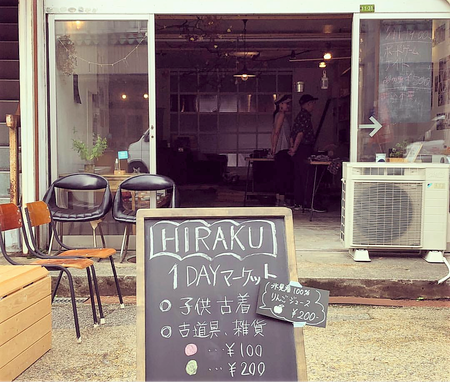 HIRAKU
1 DAY マーケット
○ 子供 古着
○ 古道具、雑貨
… ¥100
… ¥200
果汁100%
りんごジュース
¥200-